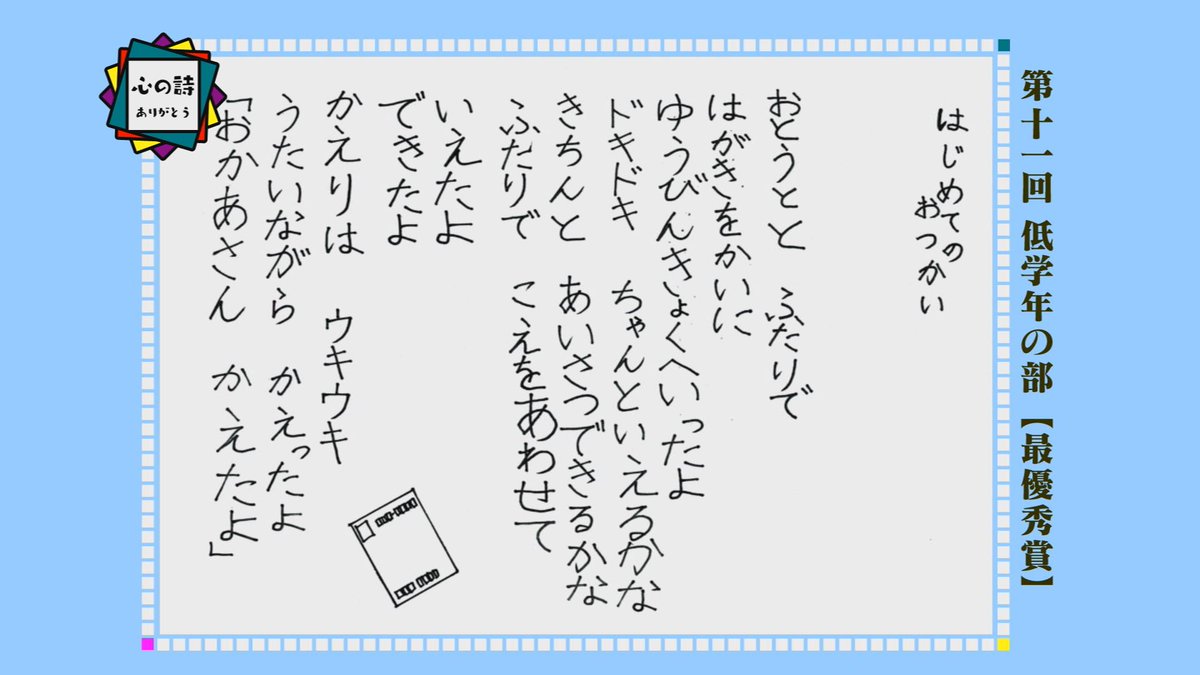 心の詩
ありがとう
第十一回 低学年の部【最優秀賞】
はじめての
おつかい
おとうとと ふたりで
はがきをかいに
ゆうびんきょくへいったよ
ドキドキ ちゃんといえるかな
きちんと あいさつできるかな
ふたりで こえをあわせて
いえたよ
できたよ
かえりは ウキウキ
うたいながら かえったよ
「おかあさん かえたよ」